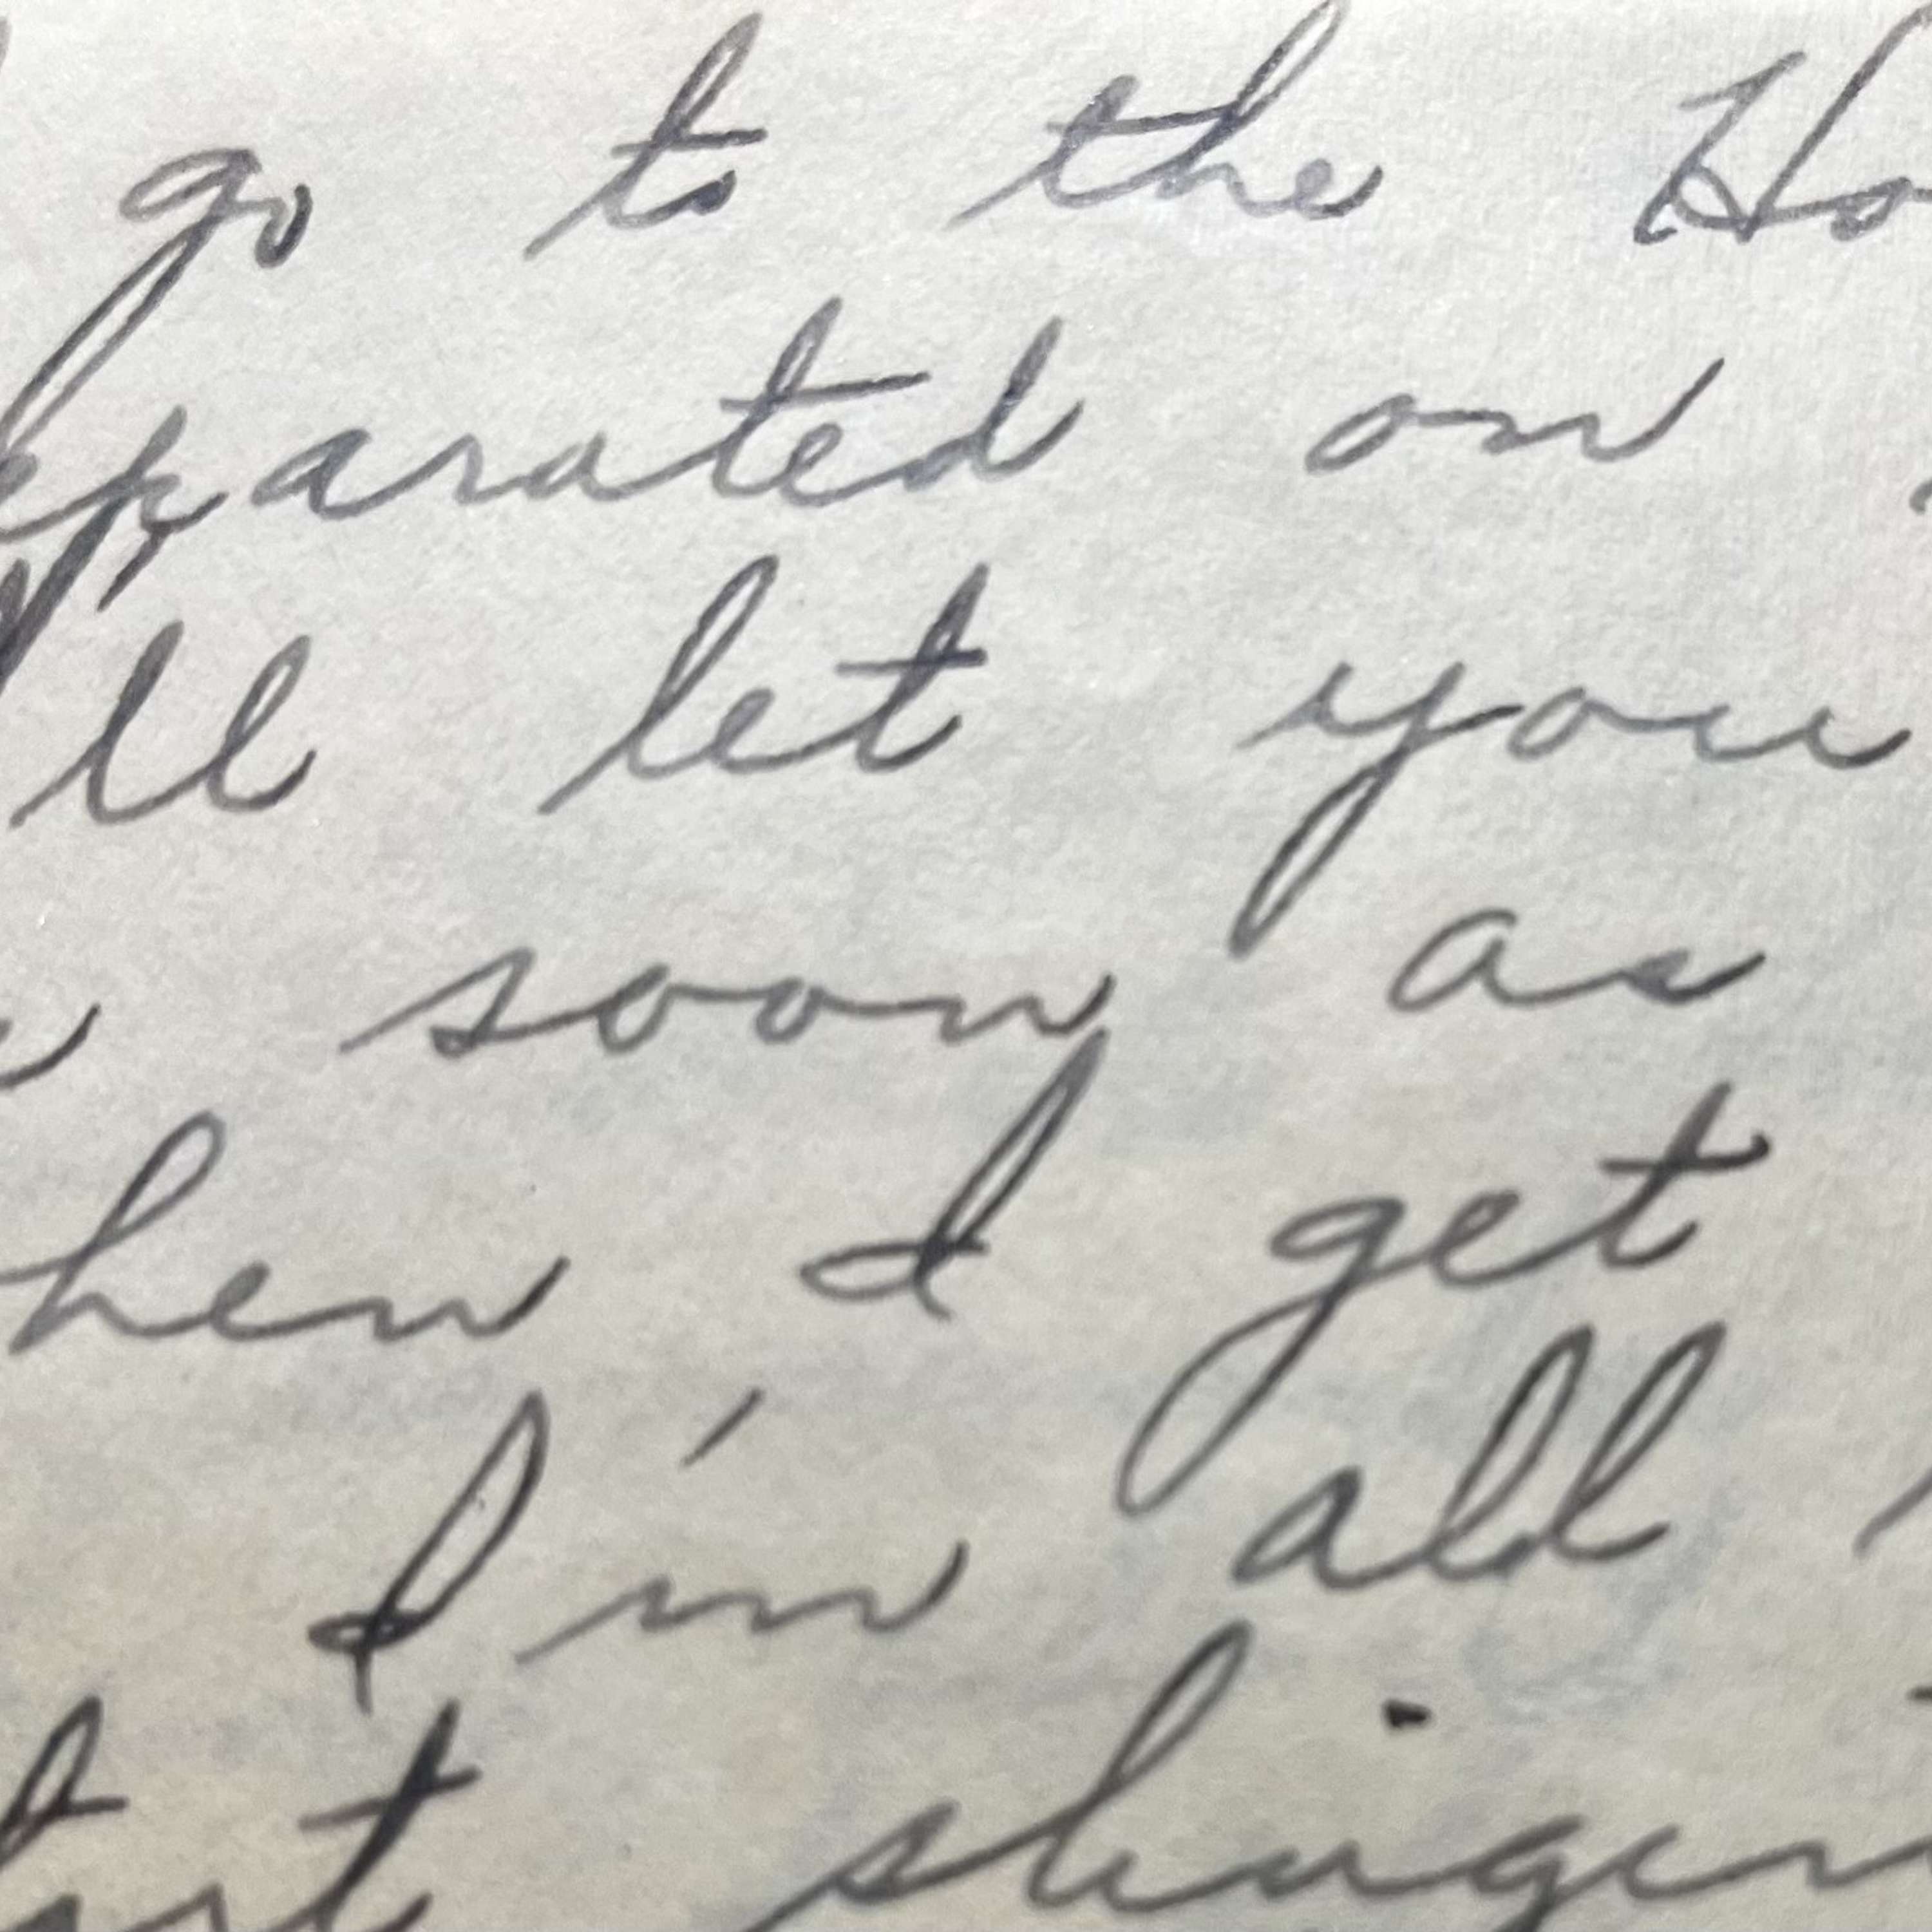 go to the Ho
eparated on
'll let you
soon as
hen I get
I'm all
tart